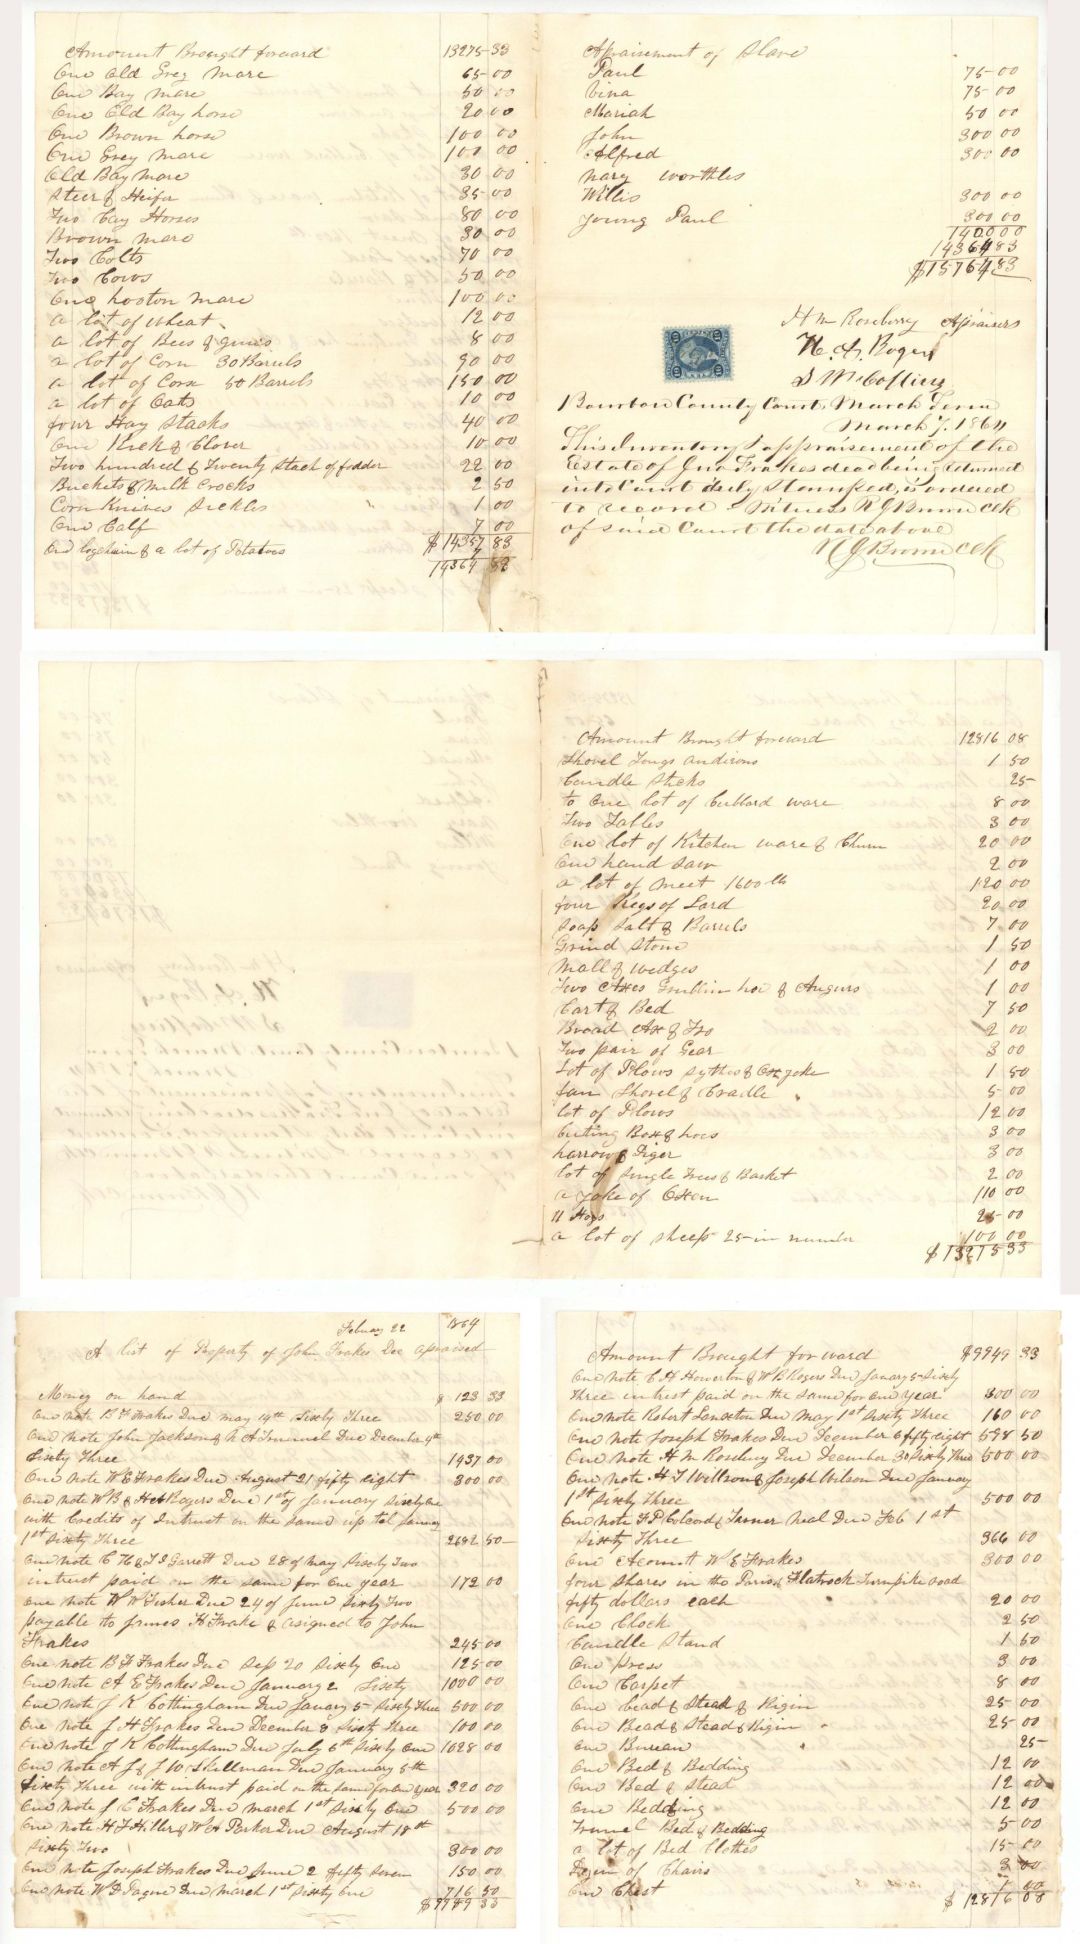 Amount Brought forward 13275 33
One old Grey Mare 65 00
One Bay mare 50 00
One Old Bay horse 20 00
One Brown horse 100 00
One Grey Mare 100 00
Old Bay Mare 30 00
Steer & Heifer 35 00
Two Bay Horses 80 00
Brown mare 30 00
Two Colts 70 00
Two Cows 50 00
One mare 100 00
a lot of wheat 12 00
a lot of Bees & gums 8 00
a lot of Corn 30 Barrels 90 00
a lot of Corn 50 Barrels 150 00
a lot of Oats 10 00
four Hay Stacks 40 00
One Rick of Clover 10 00
Two hundred & Twenty stack of fodder 22 00
Buckets & Milk Crocks 2 50
Corn Knives Sickles " 1 00
One Calf 7 00
$14357 83
One logchain & a lot of Potatoes 7
14364 83
Apraisement of Slave
Paul 75 00
Vina 75 00
Mariah 50 00
John 300 00
Alfred 300 00
nary worthles
Willis 300 00
Young Paul 300 00
1400 00
14364 83
$15764 83
H M Roseberry Apraisers
H. A. Rogers
Bourbon County Court March Term
March 7, 1864
This Inventory & appraisement of the
Estate of Jno Frakes dead being returned
into Court duly Stamped, is ordered
to record. Witness R J Brown Clk
of said Court the date above
R J Brown Clk
Amount Brought forward 12816 08
Shovel Tongs andirons 1 50
Candle Sticks 25
to One lot of Cubbard ware 8 00
Two Tables 3 00
One lot of Kitchen ware & Churn 20 00
One hand saw 2 00
a lot of meet 1600 lb 120 00
four Kegs of Lard 20 00
Soap Salt & Barrels 7 00
Grind Stone 1 50
Mall & wedges 1 00
Two Axes Grubbin hoe & Augurs 1 00
Cart & Bed 7 50
Broad Ax & Fro 2 00
Two pair of Gear 3 00
Lot of Plows Sythes & Ox yoke 1 50
fan Shovel & Cradle 5 00
lot of Plows 12 00
Cuting Box & hoes 3 00
harrow & Diger 3 00
lot of Single Trees & Basket 2 00
a yoke of Oxen 110 00
11 Hogs 25 00
a lot of sheep 25 in number 100 00
$13275 33
Febuary 22 1864
A list of Property of John Frakes Dec appraised
Money on hand $ 123 33
One note B F Frakes Due may 19th Sixty Three 250 00
One note John Jackson & R A Due December 9th
Sixty Three 1937 00
One note W E Frakes Due August 21 fifty eight 300 00
One note W B & H A Rogers Due 1st of January Sixty One
with Credits of Intrust on the same up tel January
1st Sixty Three 2682 50
One note C H & T S Garrett Due 28 of May Sixty Two
intrest paid on the same for One year 172 00
One note W W Fisher Due 24 of June Sixty Two
payable to James H Frake & asigned to John
Frakes 245 00
One note B F Frakes Due Sep 20 Sixty One 125 00
One note A E Frakes Due January 2 Sixty 1000 00
One note J K Cottingham Due January 5 Sixty Three 500 00
One note J H Frakes Due December 8 Sixty Three 100 00
One note J K Cottingham Due July 6th Sixty One 1028 00
One note A J & J W Skillman Due January 5th
Sixty Three with intrust paid on the same for One year 320 00
One note J C Frakes Due March 1st Sixty One 500 00
One note H F Hiller & W A Parker Due August 18th
Sixty Two 300 00
One note Joseph Frakes Due June 2 fifty Seven 150 00
One note W D Due March 1st Sixty One 716 50
$9949 33
Amount Brought forward $9949 33
One note C H Howerton & W B Rogers Due January 5 Sixty
Three intrest paid on the same for One Year 300 00
One note Robert Due May 1st Sixty Three 160 00
One note Joseph Frakes Due December 6 fifty eight 598 50
One note H M Roseberry Due December 30 Sixty Three 500 00
One note H T Willson & Joseph Wilson Due January
1st Sixty Three 500 00
One note F P Colcord & Turner Neal Due Feb 1st
Sixty Three 366 00
One Acount W E Frakes 300 00
four Shares in the Paris & Flatrock Turnpike road
fifty dollars each 20 00
One Clock 2 50
Candle Stand 1 50
One press 3 00
One Carpet 8 00
One bead & Stead & Rigin 25 00
One Bead & Stead & Rigin 25 00
One Bureau 25
One Bed & Bedding 12 00
One Bed & Stead 12 00
One Bedding 12 00
Trunel Bed & Bedding 5 00
a lot of Bed Clothes 15 00
Dozen of Chairs 3 00
One Chest 1 00
$12816 08